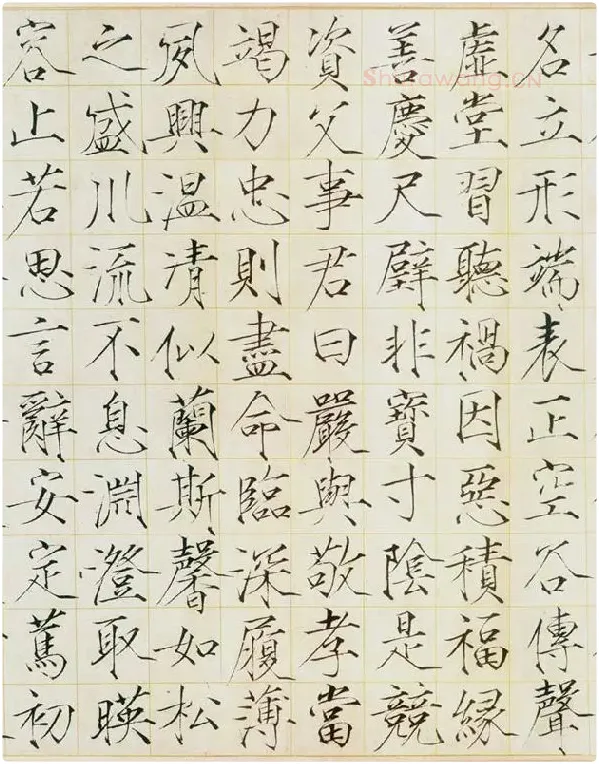 名立形端表正空谷傳聲
虛堂習聽禍因惡積福緣
善慶尺璧非寶寸陰是競
資父事君曰嚴與敬孝當
竭力忠則盡命臨深履薄
夙興温凊似蘭斯馨如松
之盛川流不息淵澄取暎
容止若思言辭安定篤初
Shufawang.CN